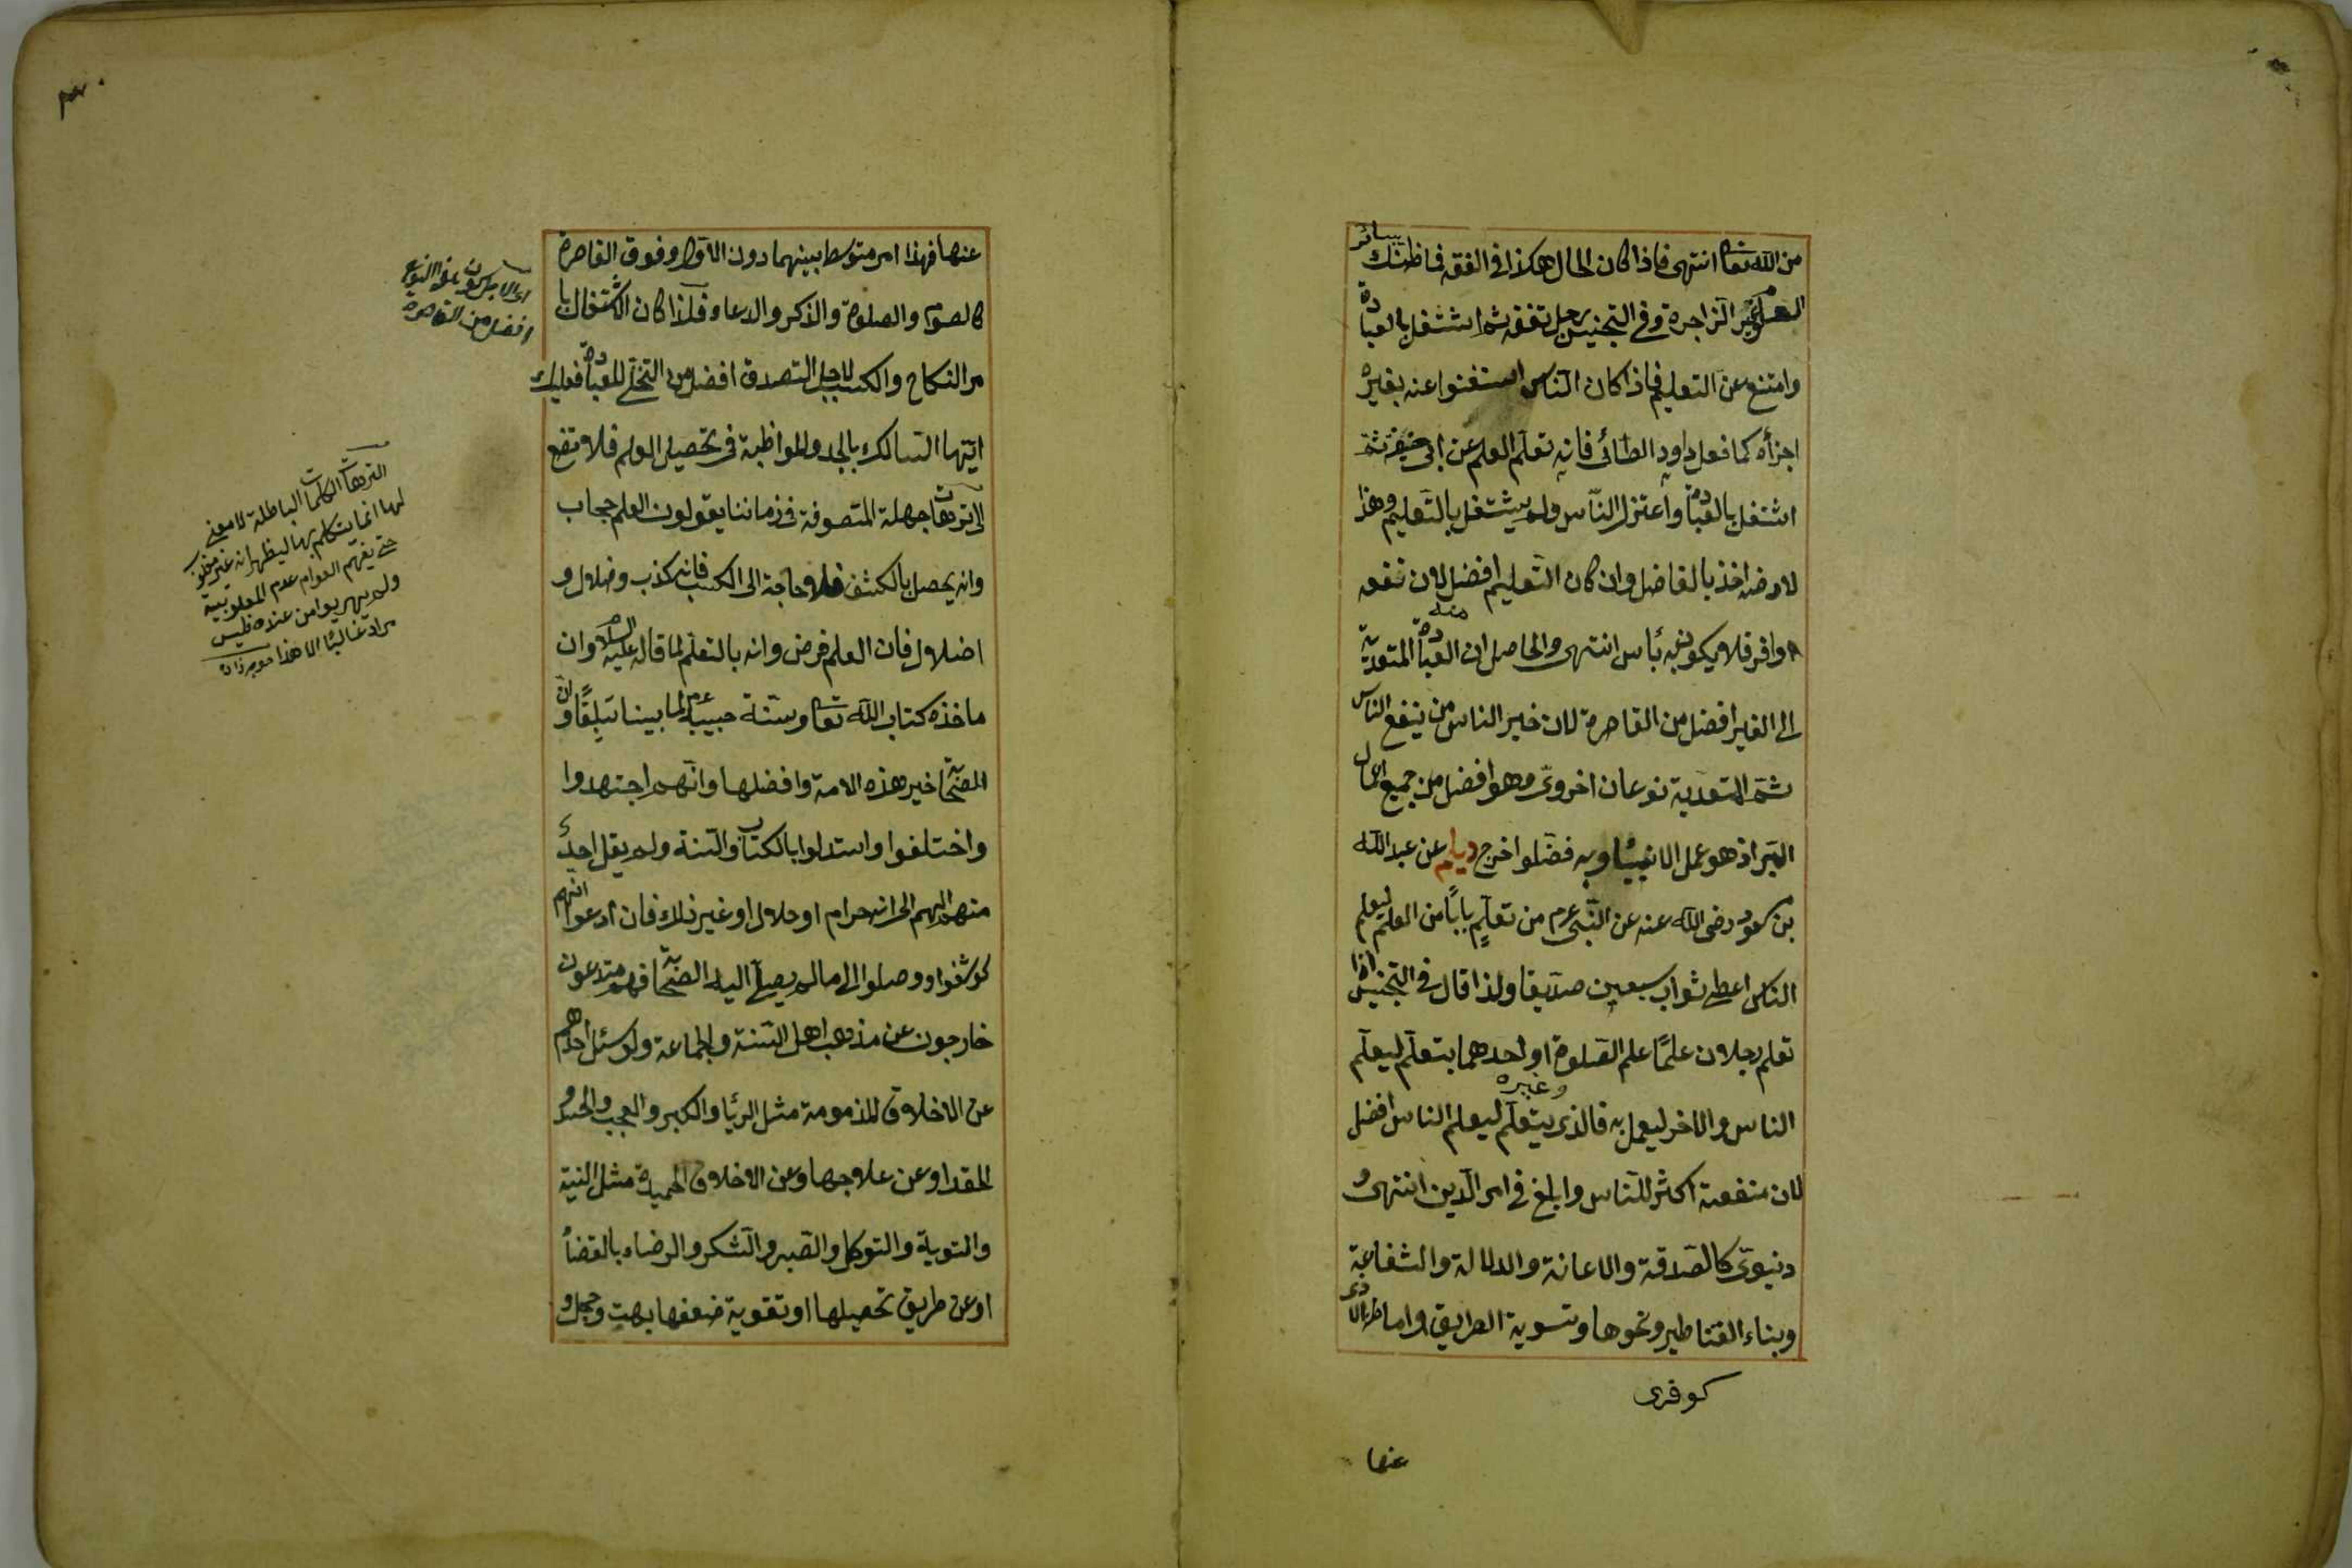 من الله تعا انتهى فاذا كان الحال هكذا فى الفقه فما ظنك بسائر
العلوم غير الزاجرة وفى التجنيس رجل تفقه ثم اشتغل بالعبادة
وامتنع عن التعليم فاذا كان الناس استغنوا عنه بغيره
اجزأه كما فعل داود الطائى فانه تعلم العلم عن ابى حنيفة ثم
اشتغل بالعبادة واعتزل الناس ولم يشتغل بالتعليم وهذا
لانه اخذ بالفاضل وان كان التعليم افضل لان نفعه
اوفر فلا يكون به بأس انتهى والحاصل ان العبادة المتعدية
منه
الى الغير افضل من القاصرة لان خير الناس من ينفع الناس
ثم المتعدية نوعان اخروى وهو افضل من جميع اعمال
البر اذ هو عمل الانبياء وبه فضلوا اخرج ديلم عن عبد الله
بن مسعود رضى الله عنه عن النبى عم من تعلم بابا من العلم ليعلم
الناس اعطى ثواب سبعين صديقا ولذا قال فى التجنيس اذا
تعلم رجلان علما علم الصلوة او احدهما يتعلم ليعلم
وغيره
الناس والاخر ليعمل به فالذى يتعلم ليعلم الناس افضل
لان منفعته اكثر للناس وابلغ فى امر الدين انتهى و
دنيوى كالصدقة والاعانة والدلالة والشفاعة
وبناء القناطير ونحوها وتسوية الطريق واماطة الاذى
عنها
عنها فهذا امر متوسط بينهما دون الاول وفوق القاصرة
كالصوم والصلوة والذكر والدعاء فلذا كان الاشتغال با
مر النكاح والكسب لاجل التصدق افضل من التخلى للعبادة فعليك
ايها السالك بالجد والمواظبة فى تحصيل العلم فلا تقع
الى ترهات جهلة المتصوفة فى زماننا يقولون العلم حجاب
وانه يحصل بالكشف فلا حاجة الى الكسب فانه كذب وضلال و
اضلال فان العلم فرض وانه بالتعلم لما قاله عليه السلام وان
ماخذه كتاب الله تعا وسنة حبيبه عم لما بينا سابقا وان
الصحابة خير هذه الامة وافضلها وانهم اجتهدوا
واختلفوا واستدلوا بالكتاب والسنة ولم يقل احد
منهم الهم الى انه حرام او حلال او غير ذلك فان ادعوا انهم
كوشفوا ووصلوا الى ما لم يصل اليه الصحابة فهم مبتدعون
خارجون عن مذهب اهل السنة والجماعة ولو سئل احدهم
عن الاخلاق المذمومة مثل الريا والكبر والعجب والحسد و
الحقد او عن علاجها وعن الاخلاق الحميدة مثل النية
والتوبة والتوكل والصبر والشكر والرضاء بالقضاء
او عن طريق تحصيلها او تقوية ضعفها بهت وخجل و
افضل من القاصرة
الترهات الكلمات الباطلة لا معنى
لها انما يتكلم بها ليظهر انه غير مغلوب
حتى يفهم العوام عدم المغلوبية
ولم يهربوا من عنده فليس
مراد غالبا الا هذا خوجه زاده